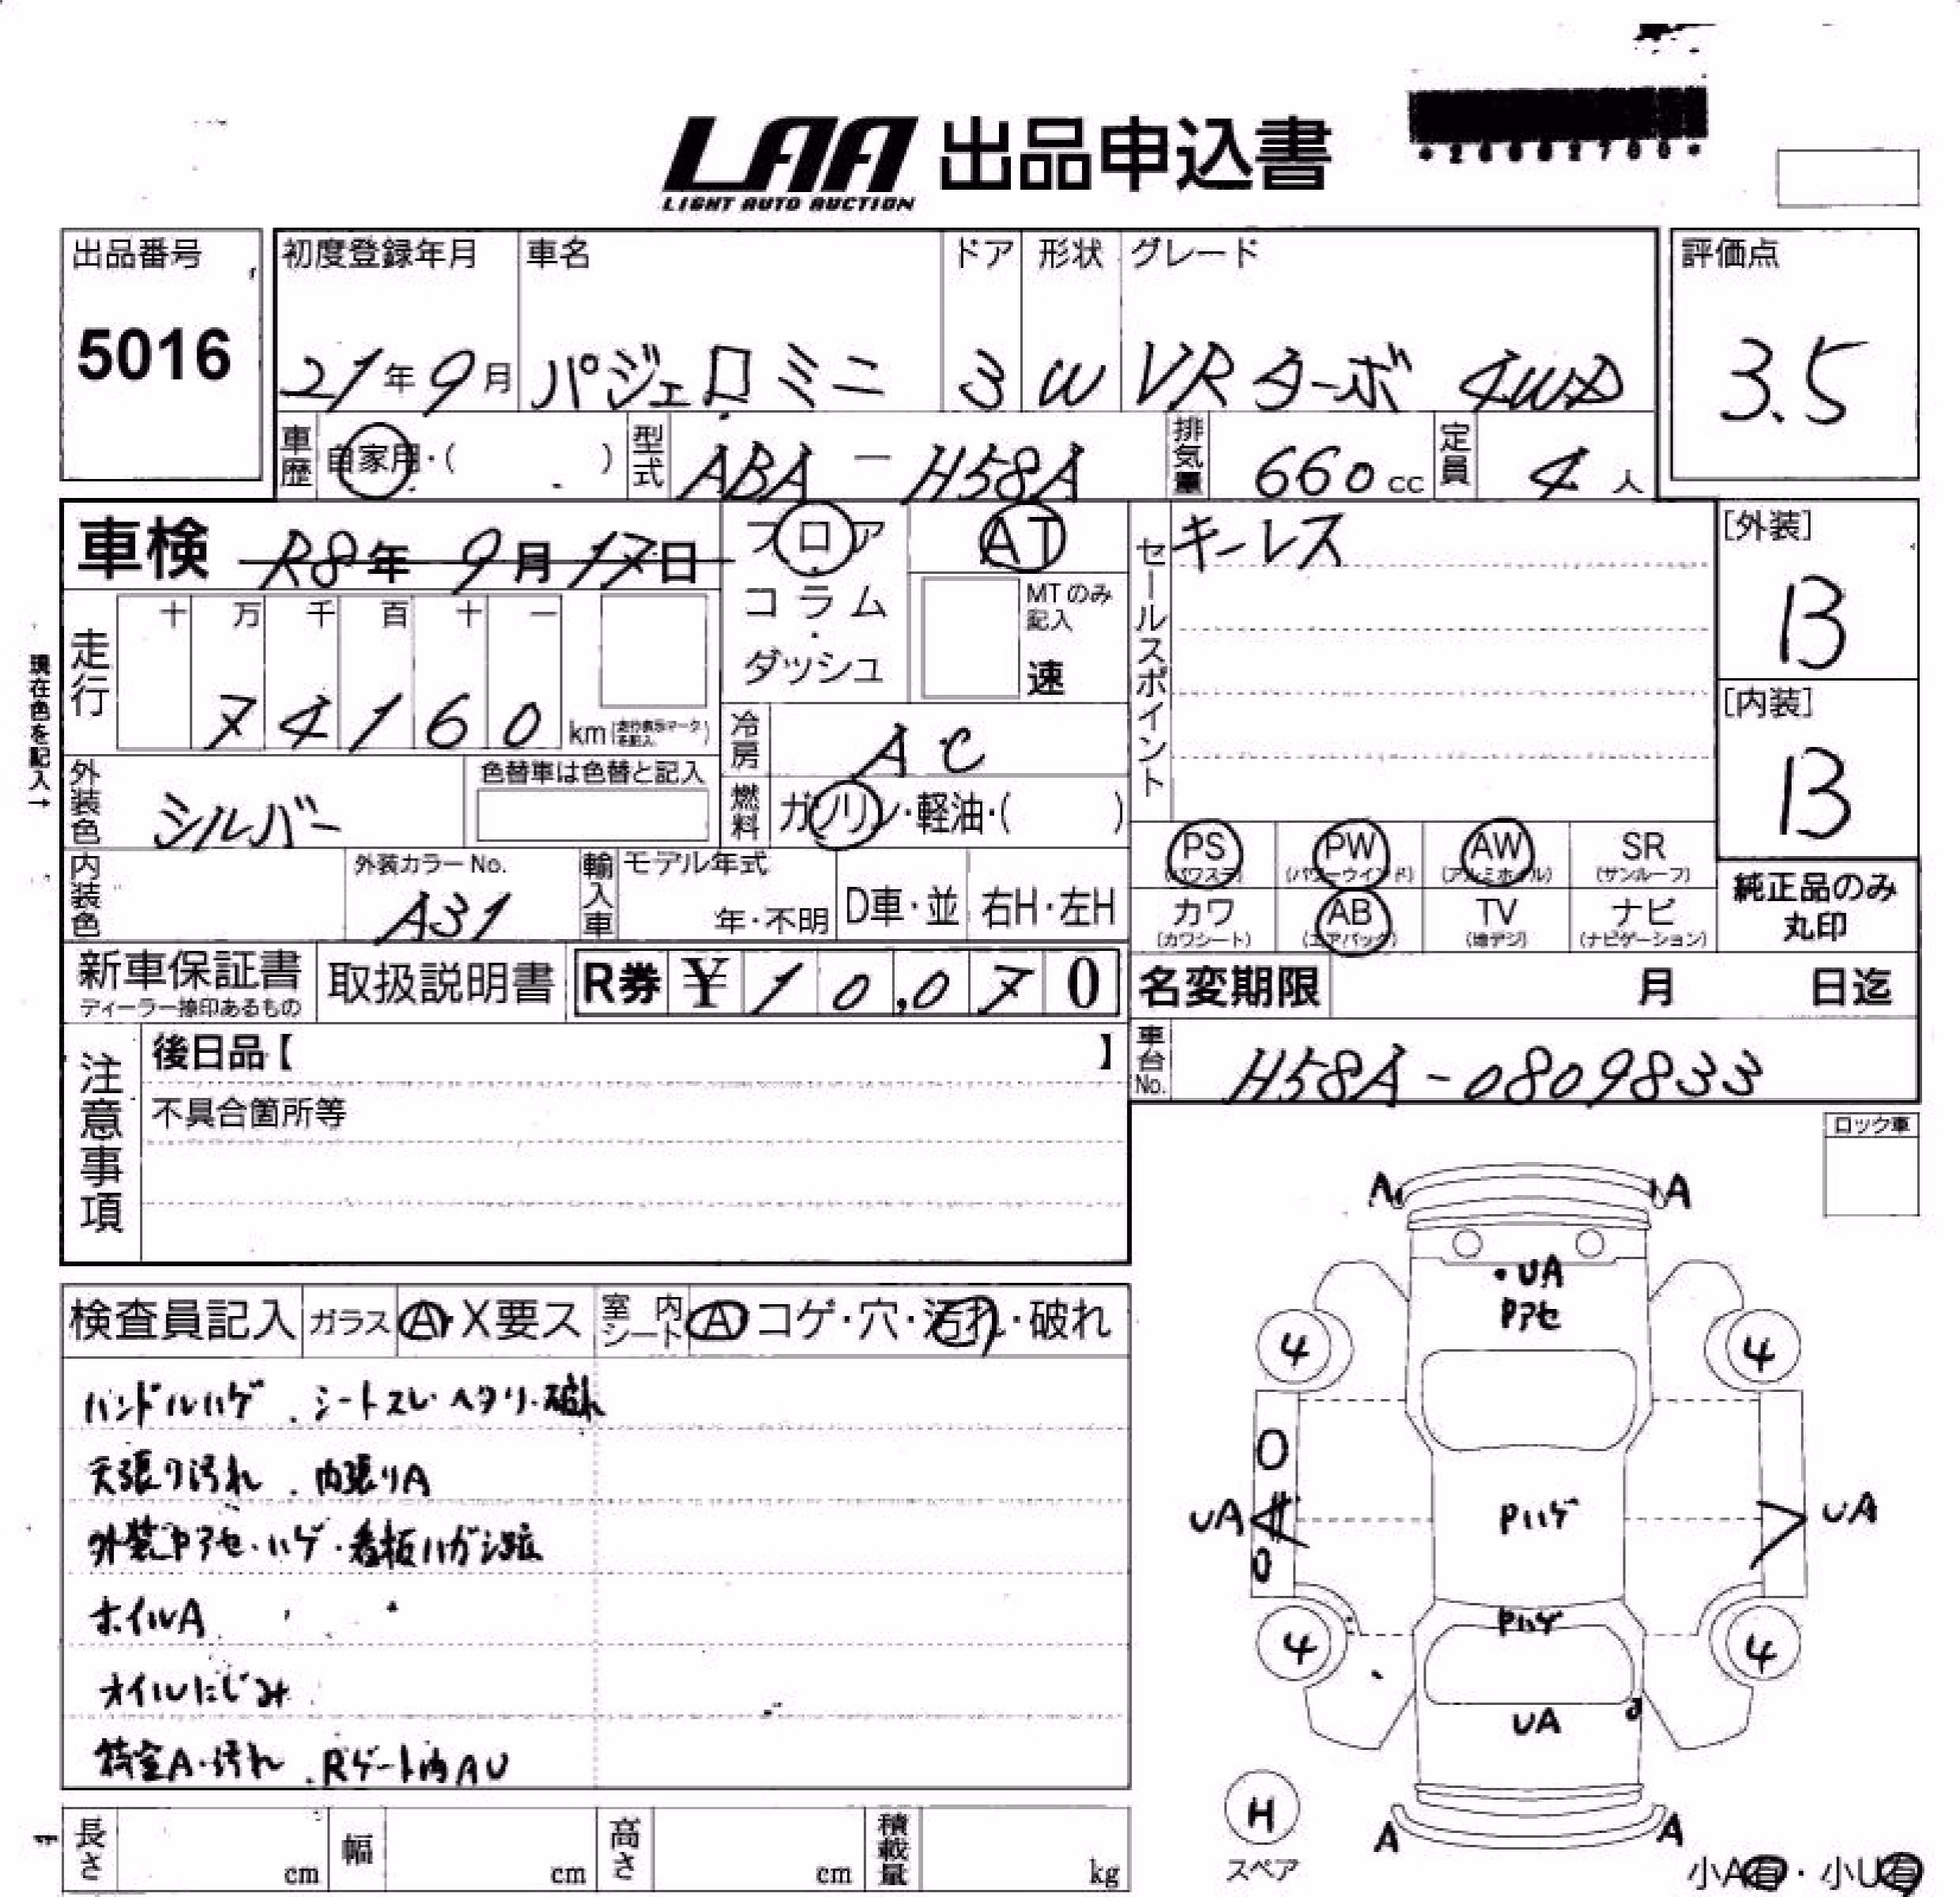 LAA 出品申込書
LIGHT AUTO AUCTION
出品番号
5016
初度登録年月 車名 ドア 形状 グレード
21年9月 パジェロミニ 3 W VRターボ 4WD
評価点
3.5
車歴 自家用・( ) 型式 ABA-H58A 排気量 660cc 定員 4人
車検 R8年9月17日
フロア
コラム
・
ダッシュ
AT
MTのみ
記入
速
セールスポイント
キーレス
[外装]
B
[内装]
B
現在色を記入→
走行 十 万 千 百 十 一
74160 km(走行表示マークを記入)
冷房 AC
外装色 シルバー 色替車は色替と記入
燃料 ガソリン・軽油・( )
PS PW AW SR
(パワステ) (パワーウインド) (アルミホイル) (サンルーフ)
カワ AB TV ナビ
(カワシート) (エアバック) (地デジ) (ナビゲーション)
純正品のみ
丸印
内装色 外装カラーNo. A31 輸入車 モデル年式 年・不明 D車・並 右H・左H
新車保証書 取扱説明書 R券 ¥10,070
ディーラー捺印あるもの
名変期限 月 日迄
車台No. H58A-0809833
注意事項
後日品【 】
不具合箇所等
ロック車
検査員記入 ガラス A・X要ス 室内シート A コゲ・穴・汚れ・破れ
ハンドルハゲ.シートスレ・ヘタリ・破れ
天張り汚れ.内張りA
外装Pアセ・ハゲ・看板ハガシ跡
ホイルA
オイルにじみ
荷室A・汚れ.Rゲート内AU
A A
・UA
Pアセ
4 4
UA Pハゲ UA
Pハゲ
4 4
UA
H
スペア
A A
小A有・小U有
長さ cm 幅 cm 高さ cm 積載量 kg